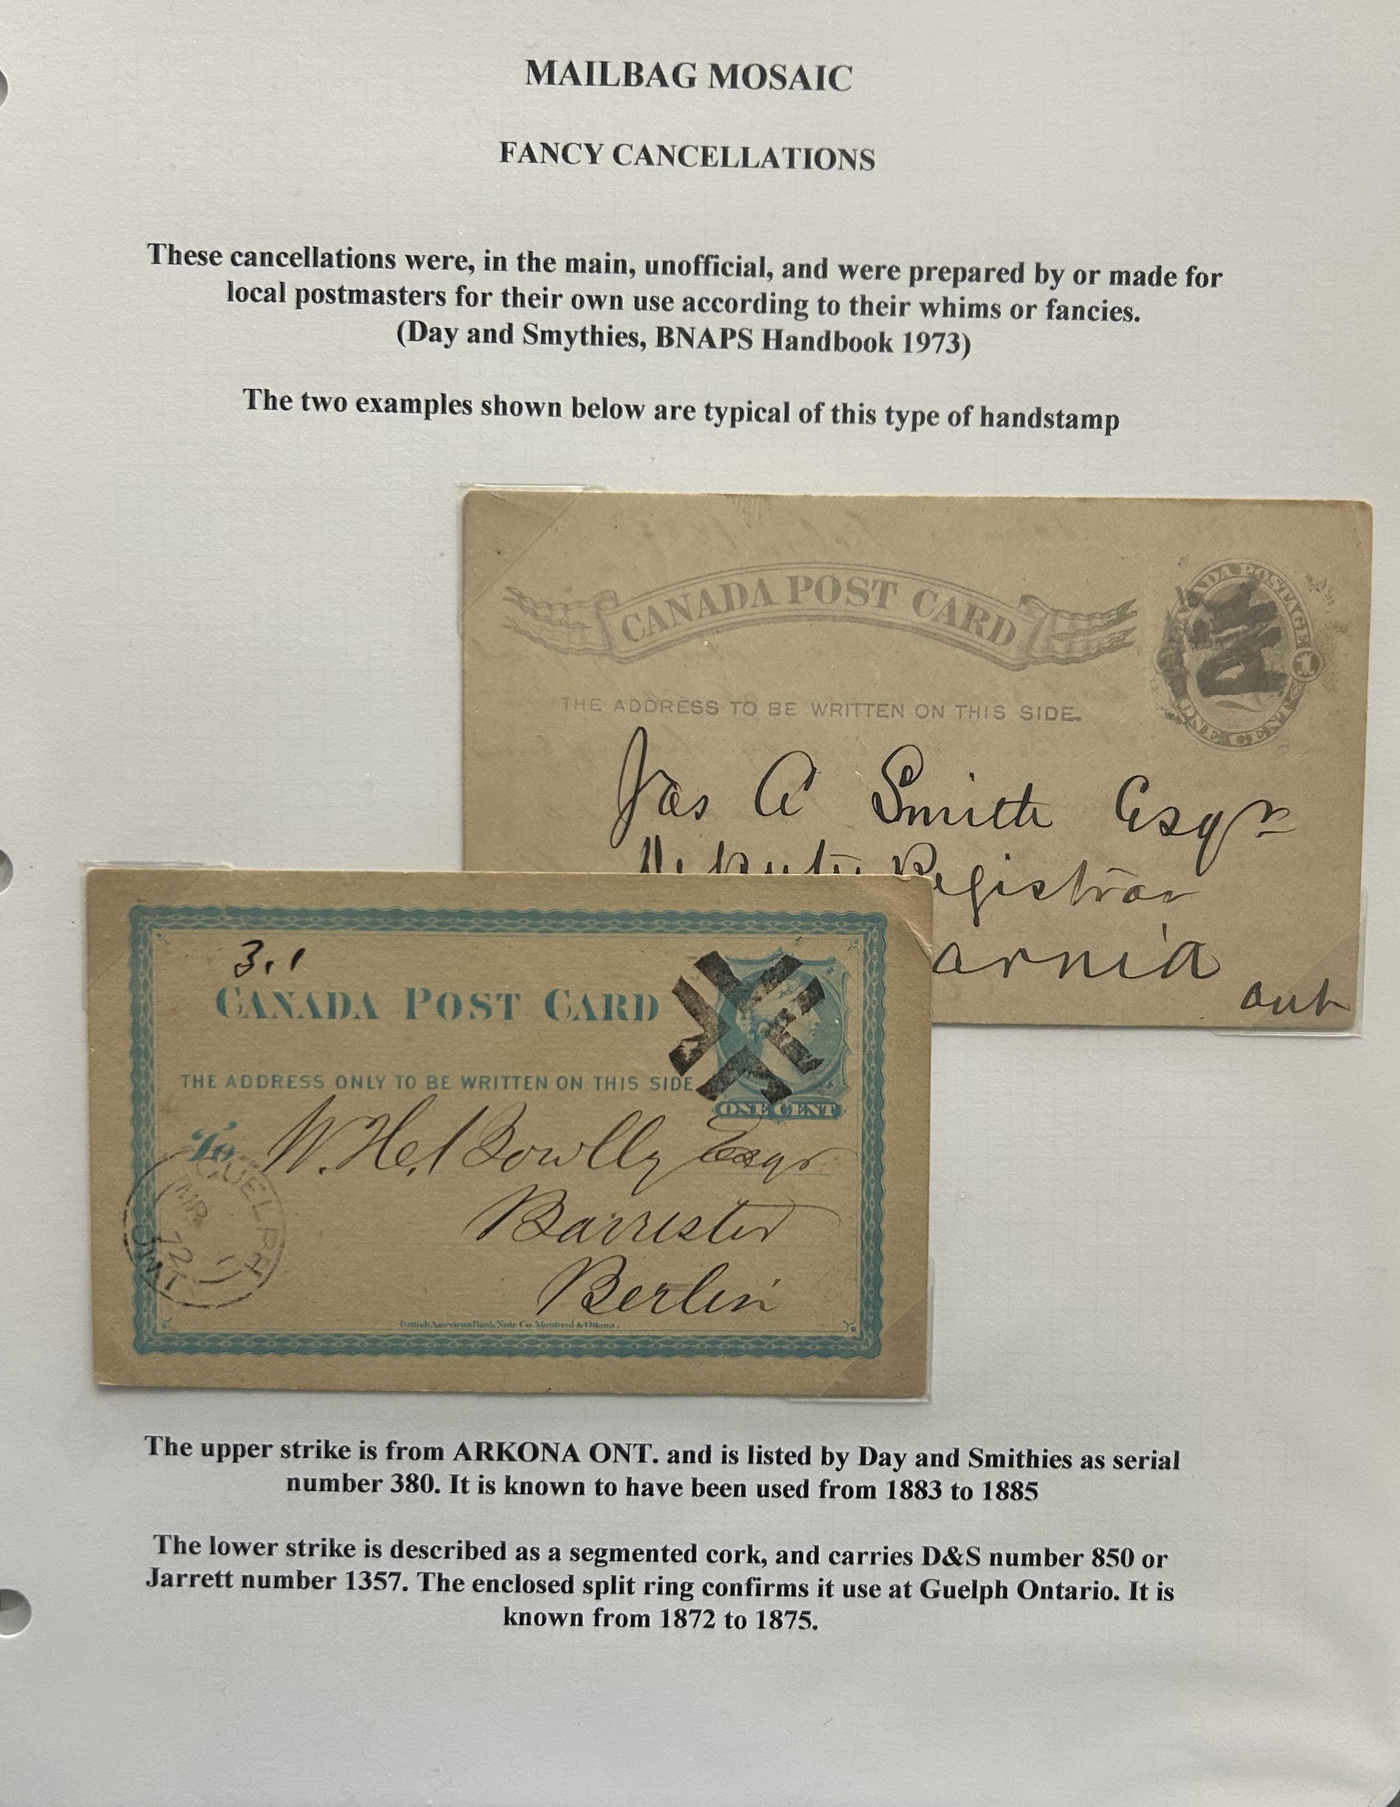 MAILBAG MOSAIC
FANCY CANCELLATIONS
These cancellations were, in the main, unofficial, and were prepared by or made for
local postmasters for their own use according to their whims or fancies.
(Day and Smythies, BNAPS Handbook 1973)
The two examples shown below are typical of this type of handstamp
CANADA POST CARD
CANADA POSTAGE
1
ONE CENT
THE ADDRESS TO BE WRITTEN ON THIS SIDE.
Jas A Smith Esqr
Deputy Registrar
arnia
out
3.1
CANADA POST CARD
THE ADDRESS ONLY TO BE WRITTEN ON THIS SIDE
ONE CENT
To W. H. Bowlby Esqr
Barrister
Berlin
GUELPH
MR 1
72
ONT
British American Bank Note Co. Montreal & Ottawa.
The upper strike is from ARKONA ONT. and is listed by Day and Smithies as serial
number 380. It is known to have been used from 1883 to 1885
The lower strike is described as a segmented cork, and carries D&S number 850 or
Jarrett number 1357. The enclosed split ring confirms it use at Guelph Ontario. It is
known from 1872 to 1875.